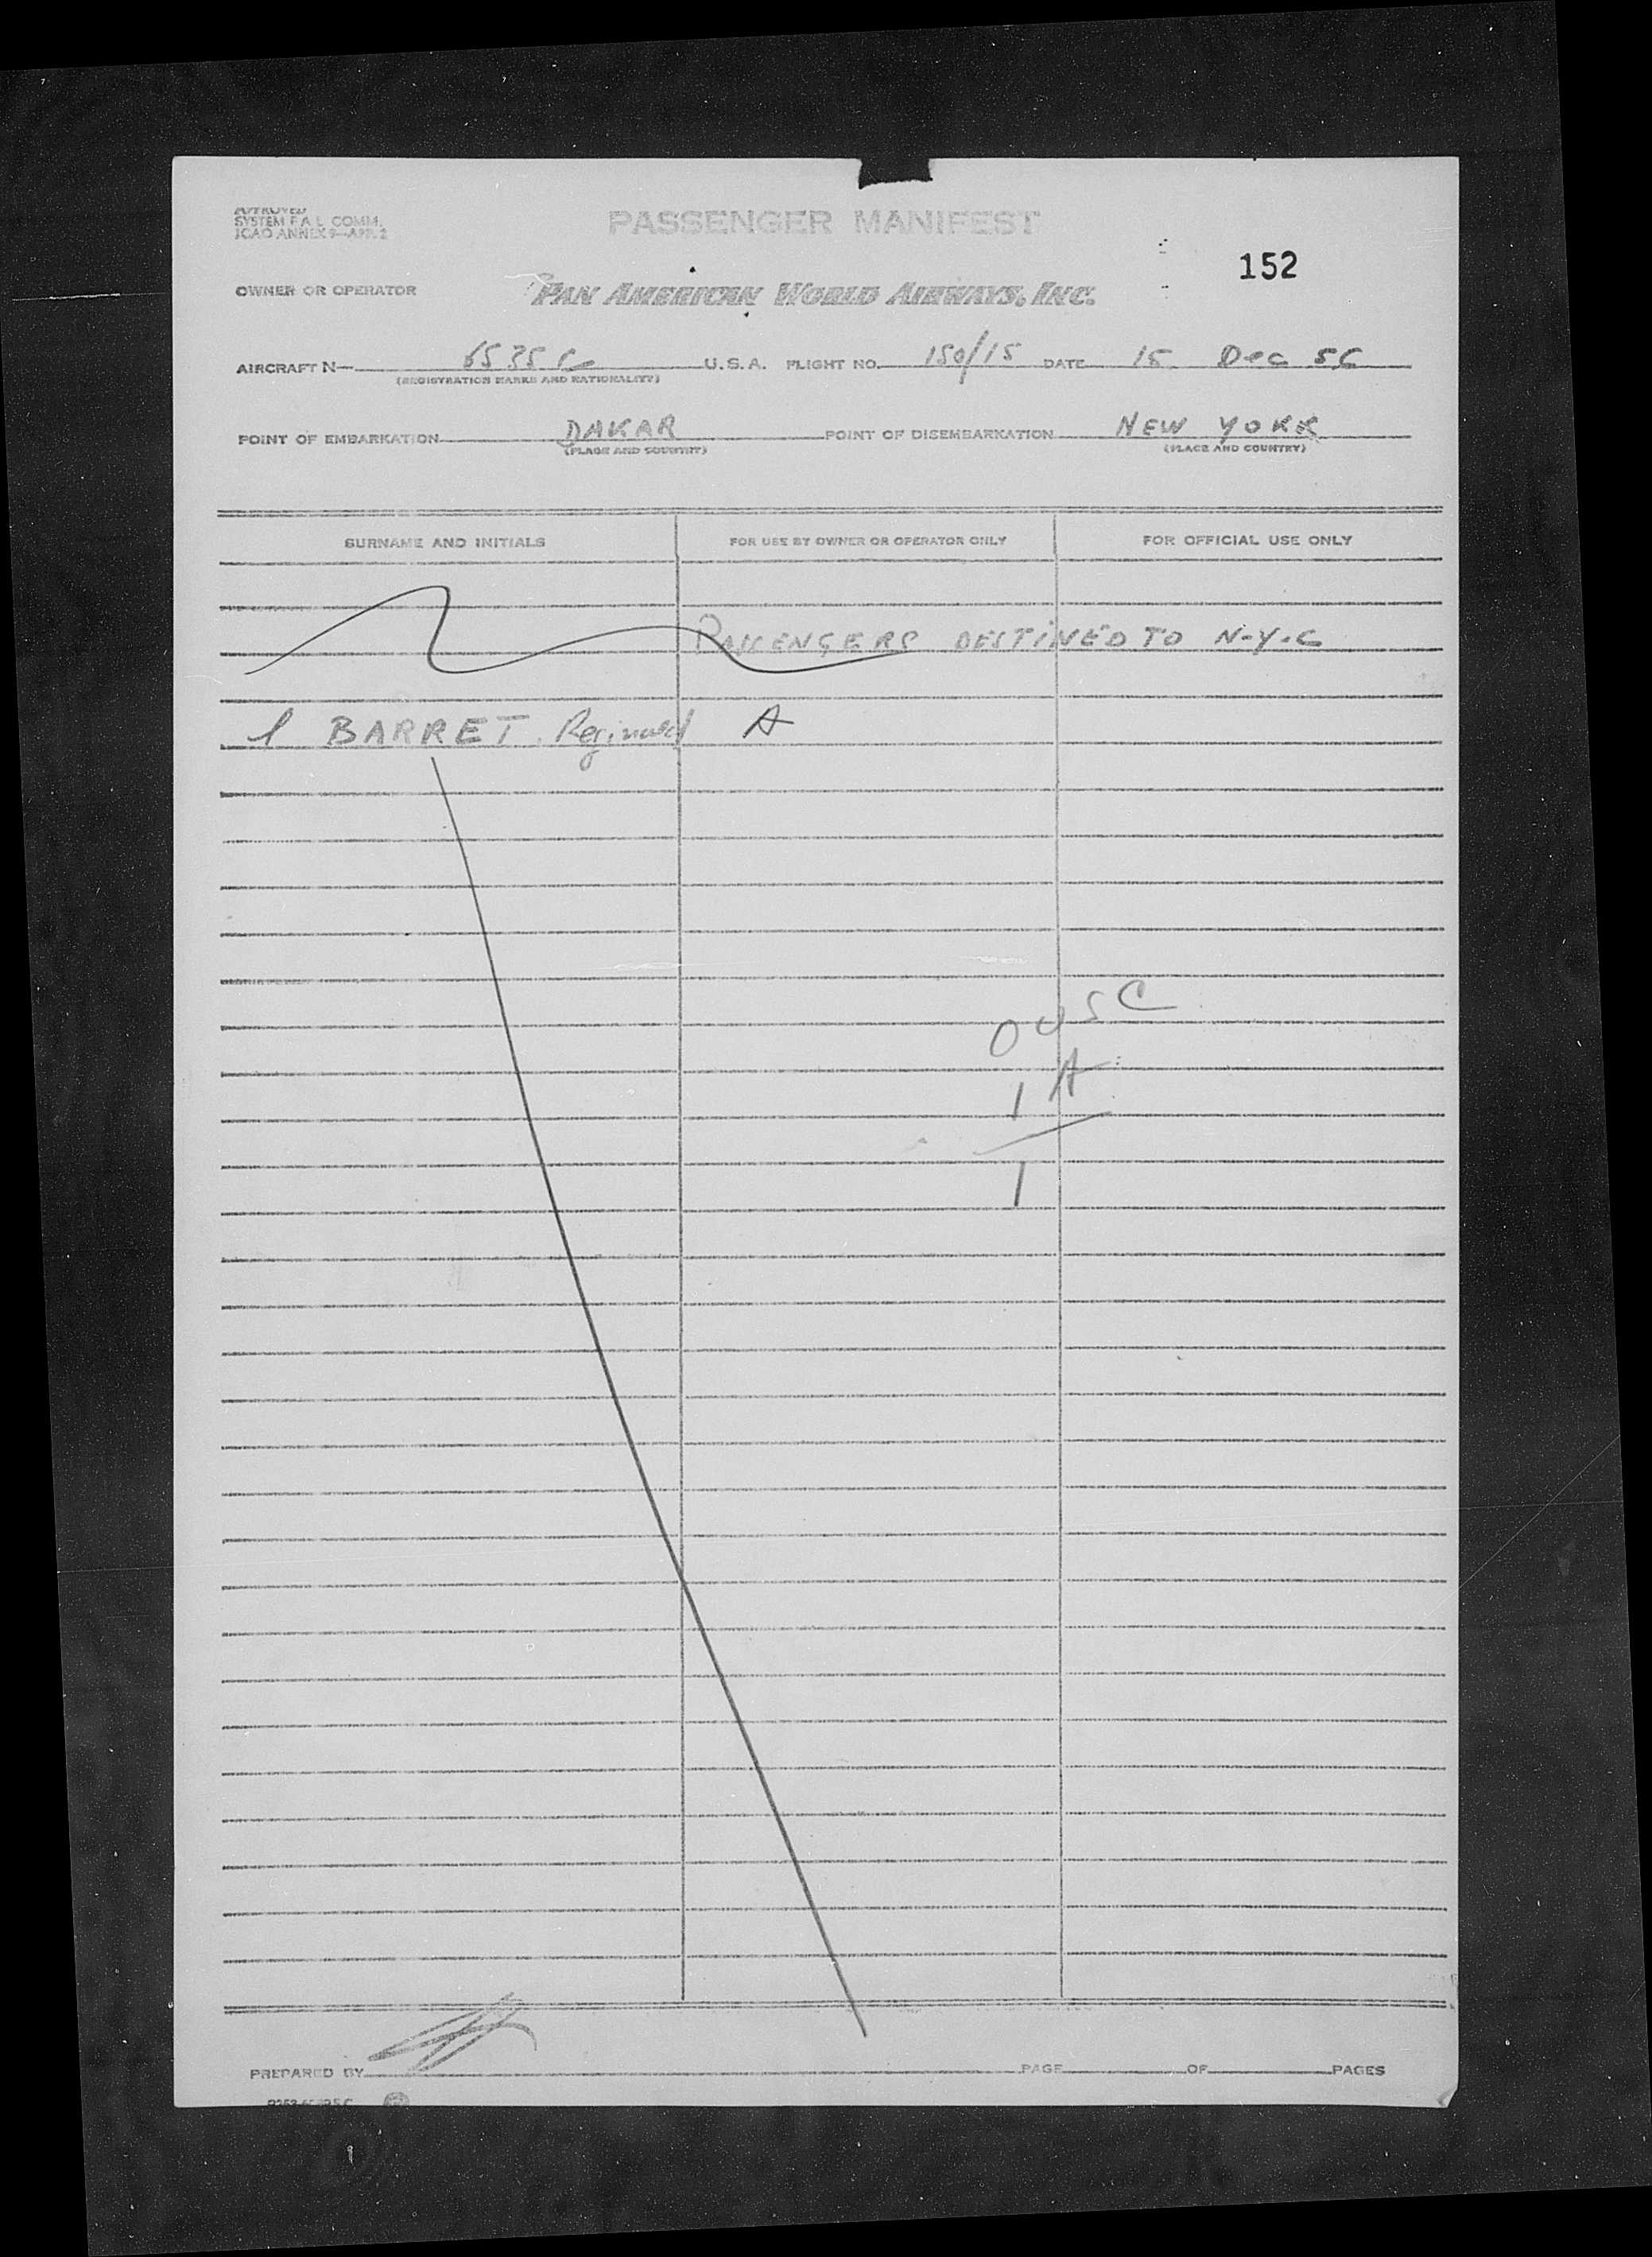 APPROVED
SYSTEM F.A.L. COMM.
ICAO ANNEX 9—APP. 2
PASSENGER MANIFEST
152
OWNER OR OPERATOR PAN AMERICAN WORLD AIRWAYS, INC.
AIRCRAFT N— 6535C U.S.A. FLIGHT NO. 150/15 DATE 15 Dec 56
(REGISTRATION MARKS AND NATIONALITY)
POINT OF EMBARKATION DAKAR POINT OF DISEMBARKATION NEW YORK
(PLACE AND COUNTRY) (PLACE AND COUNTRY)
SURNAME AND INITIALS FOR USE BY OWNER OR OPERATOR ONLY FOR OFFICIAL USE ONLY
PASSENGERS DESTINED TO N-Y-C
1 BARRET. Reginald A
0 USC
1 A
1
PREPARED BY PAGE OF PAGES